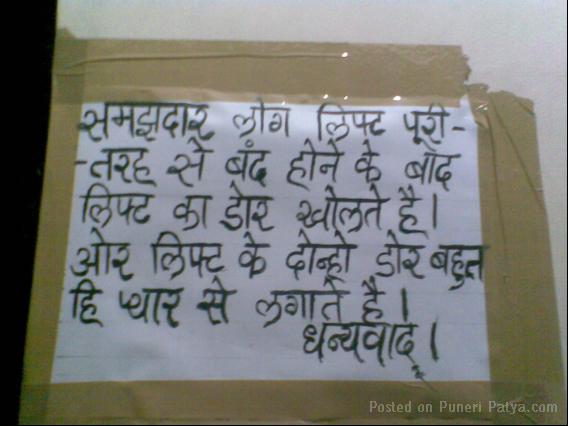 समझदार लोग लिफ्ट पूरी-
-तरह से बंद होने के बाद
लिफ्ट का डोर खोलते है।
ओर लिफ्ट के दोन्हो डोर बहुत
हि प्यार से लगाते है।
धन्यवाद।
Posted on Puneri Patya.com